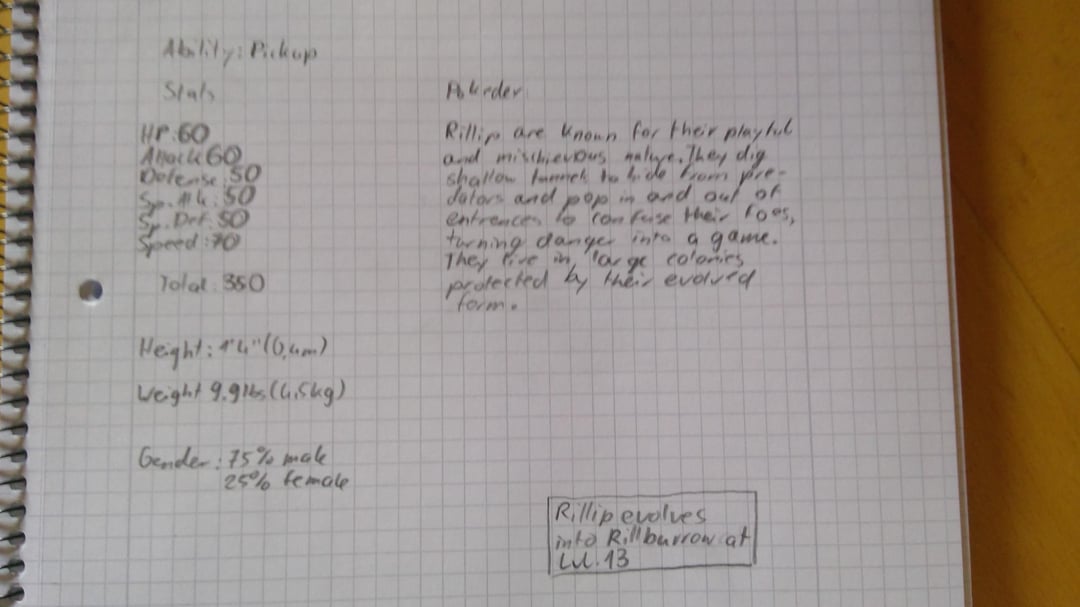 Ability: Pickup
Stats
HP: 60
Attack 60
Defense: 50
Sp. Atk: 50
Sp. Def: 50
Speed: 70
Total: 350
Height: 1'4" (0,4m)
Weight 9.9 lbs (4,5kg)
Gender: 75% male
25% female
Pokedex
Rillip are known for their playful
and mischievous nature. They dig
shallow tunnels to hide from pre-
dators and pop in and out of
entrences to confuse their foes,
turning danger into a game.
They live in large colonies
protected by their evolved
form.
Rillip evolves
into Rillburrow at
Lvl. 13